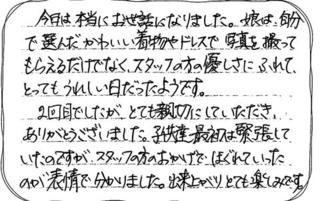 今日は本当にお世話になりました。娘は、自分
で選んだかわいい着物やドレスで写真を撮って
もらえるだけでなく、スタッフの方の優しさにふれて、
とってもうれしい日だったようです。
2回目でしたが、とても親切にしていただき、
ありがとうございました。子供達、最初は緊張して
いたのですが、スタッフの方のおかげで、ほぐれていった
のが表情で分かりました。出来上がりとても楽しみです。